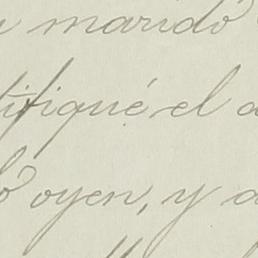 marido
tifiqué el
oyen, y